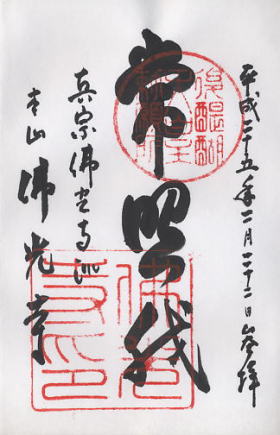 平成二十五年二月二十二日参拝
常照我
真宗佛光寺派
本山佛光寺
後醍醐天皇勅願所
佛光寺印